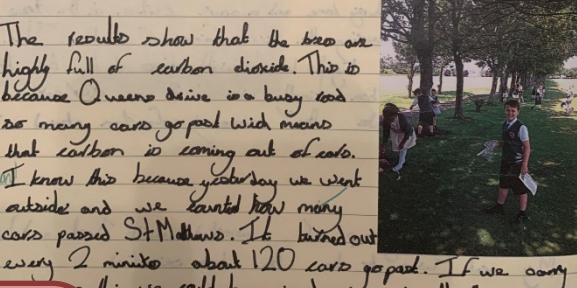 The results show that the tres are
highly full of carbon dioxide. This is
because Queens drive is a busy road
so many cars go past wich means
that carbon is coming out of cars.
I know this because yesterday we went
outside and we counted how many
cars passed St Mathews. It turned out
every 2 minites about 120 cars go past. If we carry